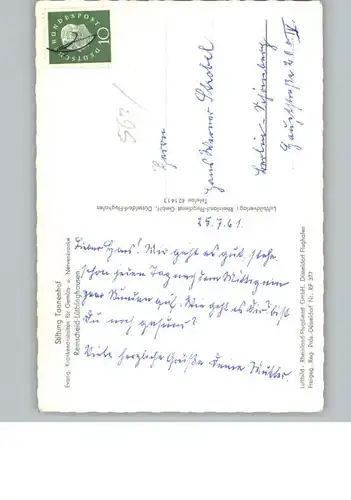 DEUTSCHE BUNDESPOST
10
503/
Herrn
Hans Werner Strobel
Berlin-Schöneberg
Hauptstraße
Luftbildverlag: Rheinland-Flugdienst GmbH, Düsseldorf-Flughafen
Telefon 421413
Stiftung Tannenhof
Evang. Krankenanstalten für Gemüts- u. Nervenkranke
Remscheid-Lüttringhausen
25.7.61.
Lieber Hans! Mir geht es gut, stehe
schon jeden Tag nach dem Mittag ein
paar Stunden auf. Wie geht es Dir? bist
Du noch gesund?
Viele herzliche Grüße Deine Mutter.
Luftbild: Rheinland-Flugdienst GmbH, Düsseldorf Flughafen
Freigeg. Reg. Präs. Düsseldorf Nr. RF 377